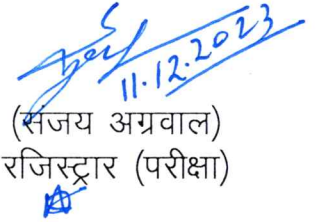 11.12.2023
(संजय अग्रवाल)
रजिस्ट्रार (परीक्षा)